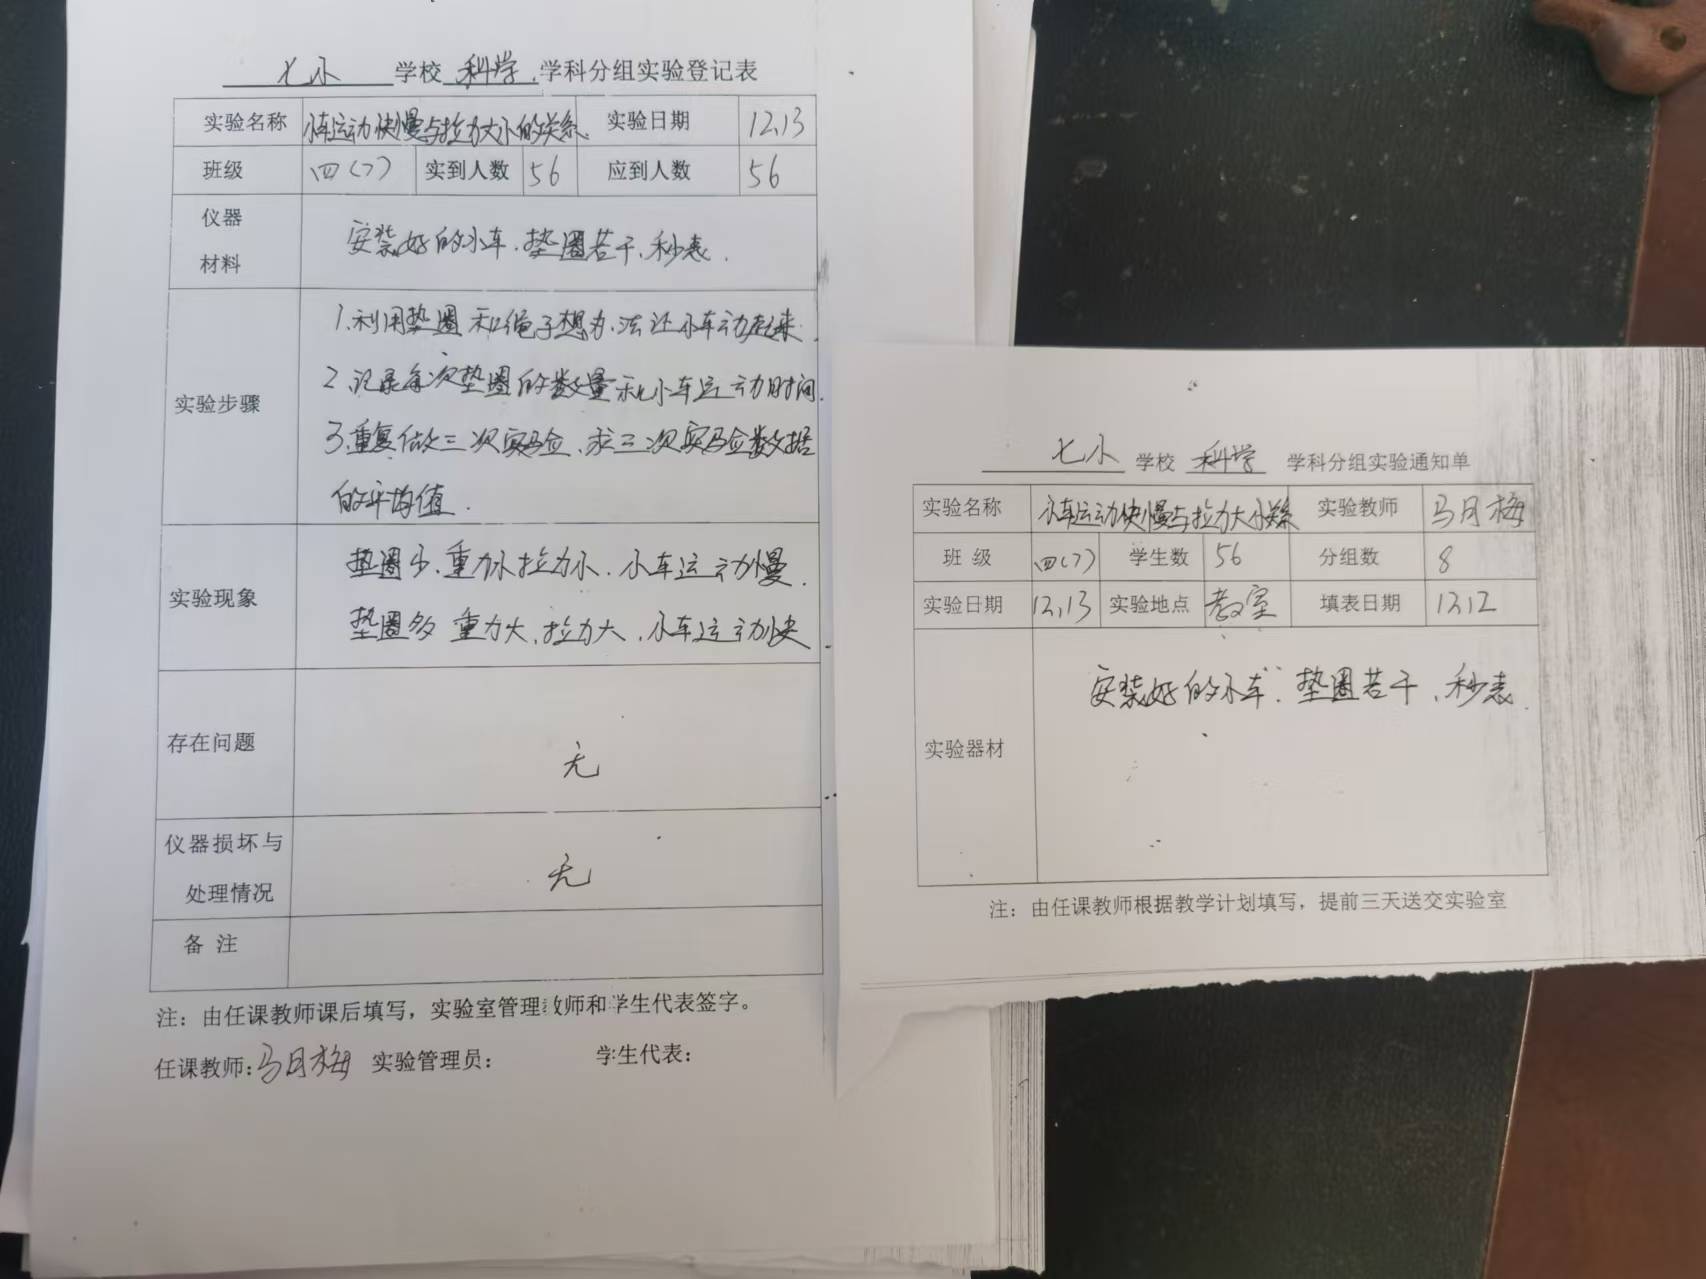 七小 学校 科学 学科分组实验登记表
实验名称 小车运动快慢与拉力大小的关系 实验日期 12,13
班级 四(7) 实到人数 56 应到人数 56
仪器
材料
安装好的小车、垫圈若干、秒表.
实验步骤
1、利用垫圈和绳子想办法让小车动起来.
2、记录每次垫圈的数量和小车运动时间.
3、重复做三次实验、求三次实验数据
的平均值.
实验现象
垫圈少、重力小拉力小、小车运动慢.
垫圈多 重力大、拉力大、小车运动快
存在问题 无
仪器损坏与
处理情况
无
备 注
注：由任课教师课后填写，实验室管理教师和学生代表签字。
任课教师:马月梅 实验管理员： 学生代表：
七小 学校 科学 学科分组实验通知单
实验名称 小车运动快慢与拉力大小关系 实验教师 马月梅
班 级 四(7) 学生数 56 分组数 8
实验日期 12,13 实验地点 教室 填表日期 12,12
实验器材 安装好的小车、垫圈若干、秒表.
注：由任课教师根据教学计划填写，提前三天送交实验室